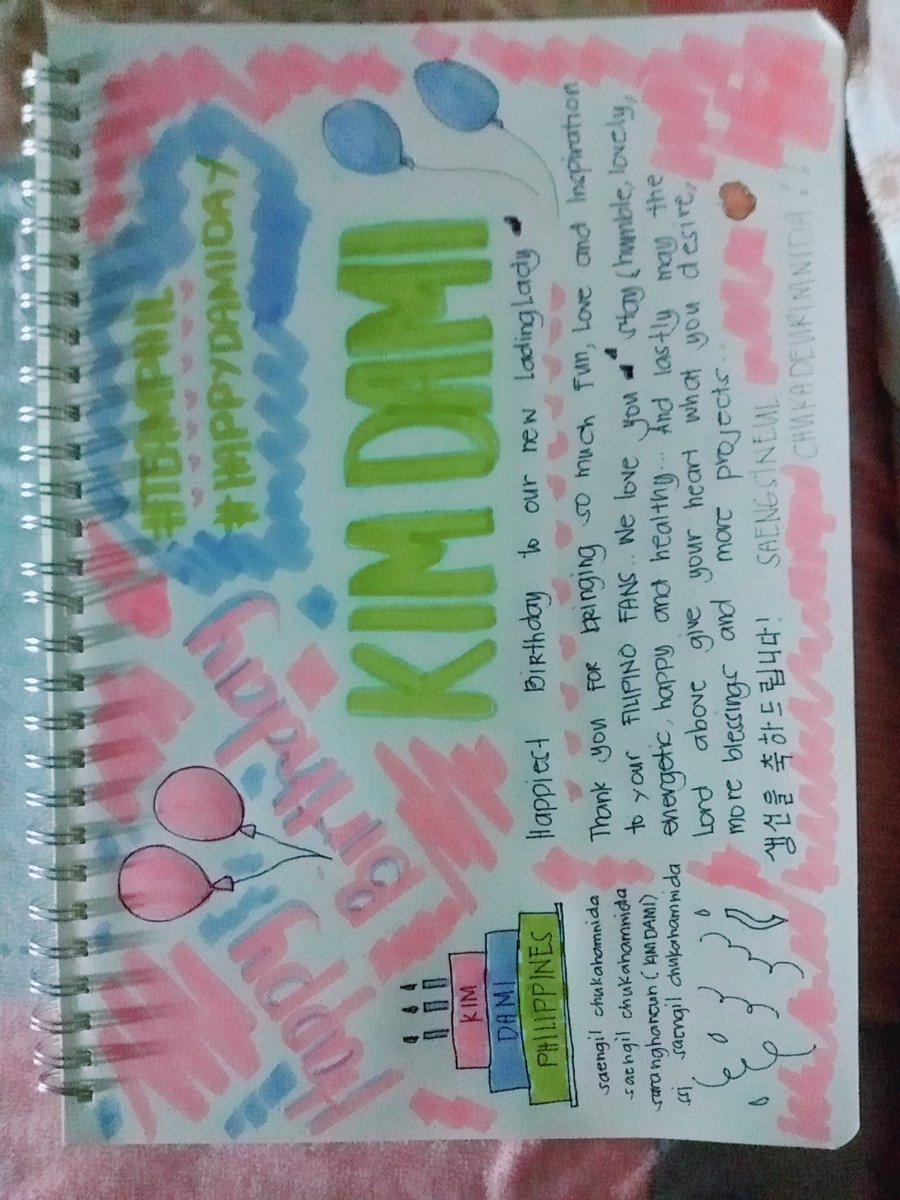 #ITEAMPHIL
#HAPPYDAMIDAY
Happy Birthday
KIM DAMI
Happiest Birthday to our new LadingLady
Thank you For bringing so much Fun, Love and Inspiration
to your FILIPINO FANS.. We love you stay (humble, lovely,
energetic, happy and healthy... And lastly may the
Lord above give your heart what you desire,
more blessings and more projects...
생신을 축하드립니다! SAENGSINEUL
CHUKADEURIMNIDA!!
KIM
DAMI
PHILIPPINES
saengil chukahamnida
saengil chukahamnida
saranghaneun (KIMDAMI)
ssi saengil chukahamnida